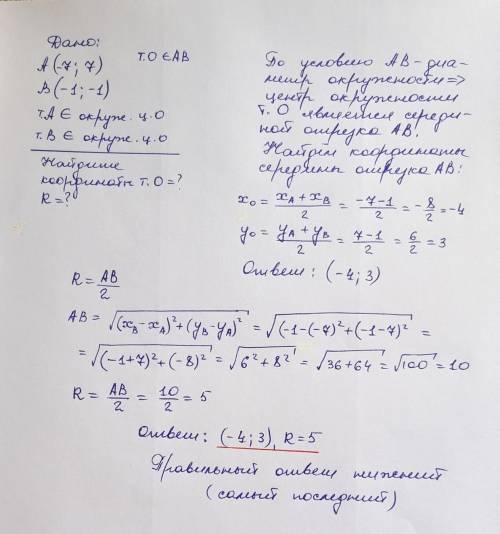 Дано:
т.О ∈ АВ
А(-7; 7)
В(-1; -1)
т.А ∈ окруж. ц.О
т.В ∈ окруж. ц.О
Найдите
координаты т.О = ?
R = ?
По условию АВ - диа-
метр окружности =>
центр окружности
т.О является середи-
ной отрезка АВ.
Найдем координаты
середины отрезка АВ:
x₀ = (x_A + x_B)/2 = (-7-1)/2 = -8/2 = -4
y₀ = (y_A + y_B)/2 = (7-1)/2 = 6/2 = 3
Ответ: (-4; 3)
R = AB/2
AB = √((x_B - x_A)² + (y_B - y_A)²) = √((-1-(-7)² + (-1-7)²) =
= √((-1+7)² + (-8)²) = √(6² + 8²) = √(36 + 64) = √100 = 10
R = AB/2 = 10/2 = 5
Ответ: (-4; 3), R = 5
Правильный ответ нижний
(самый последний)